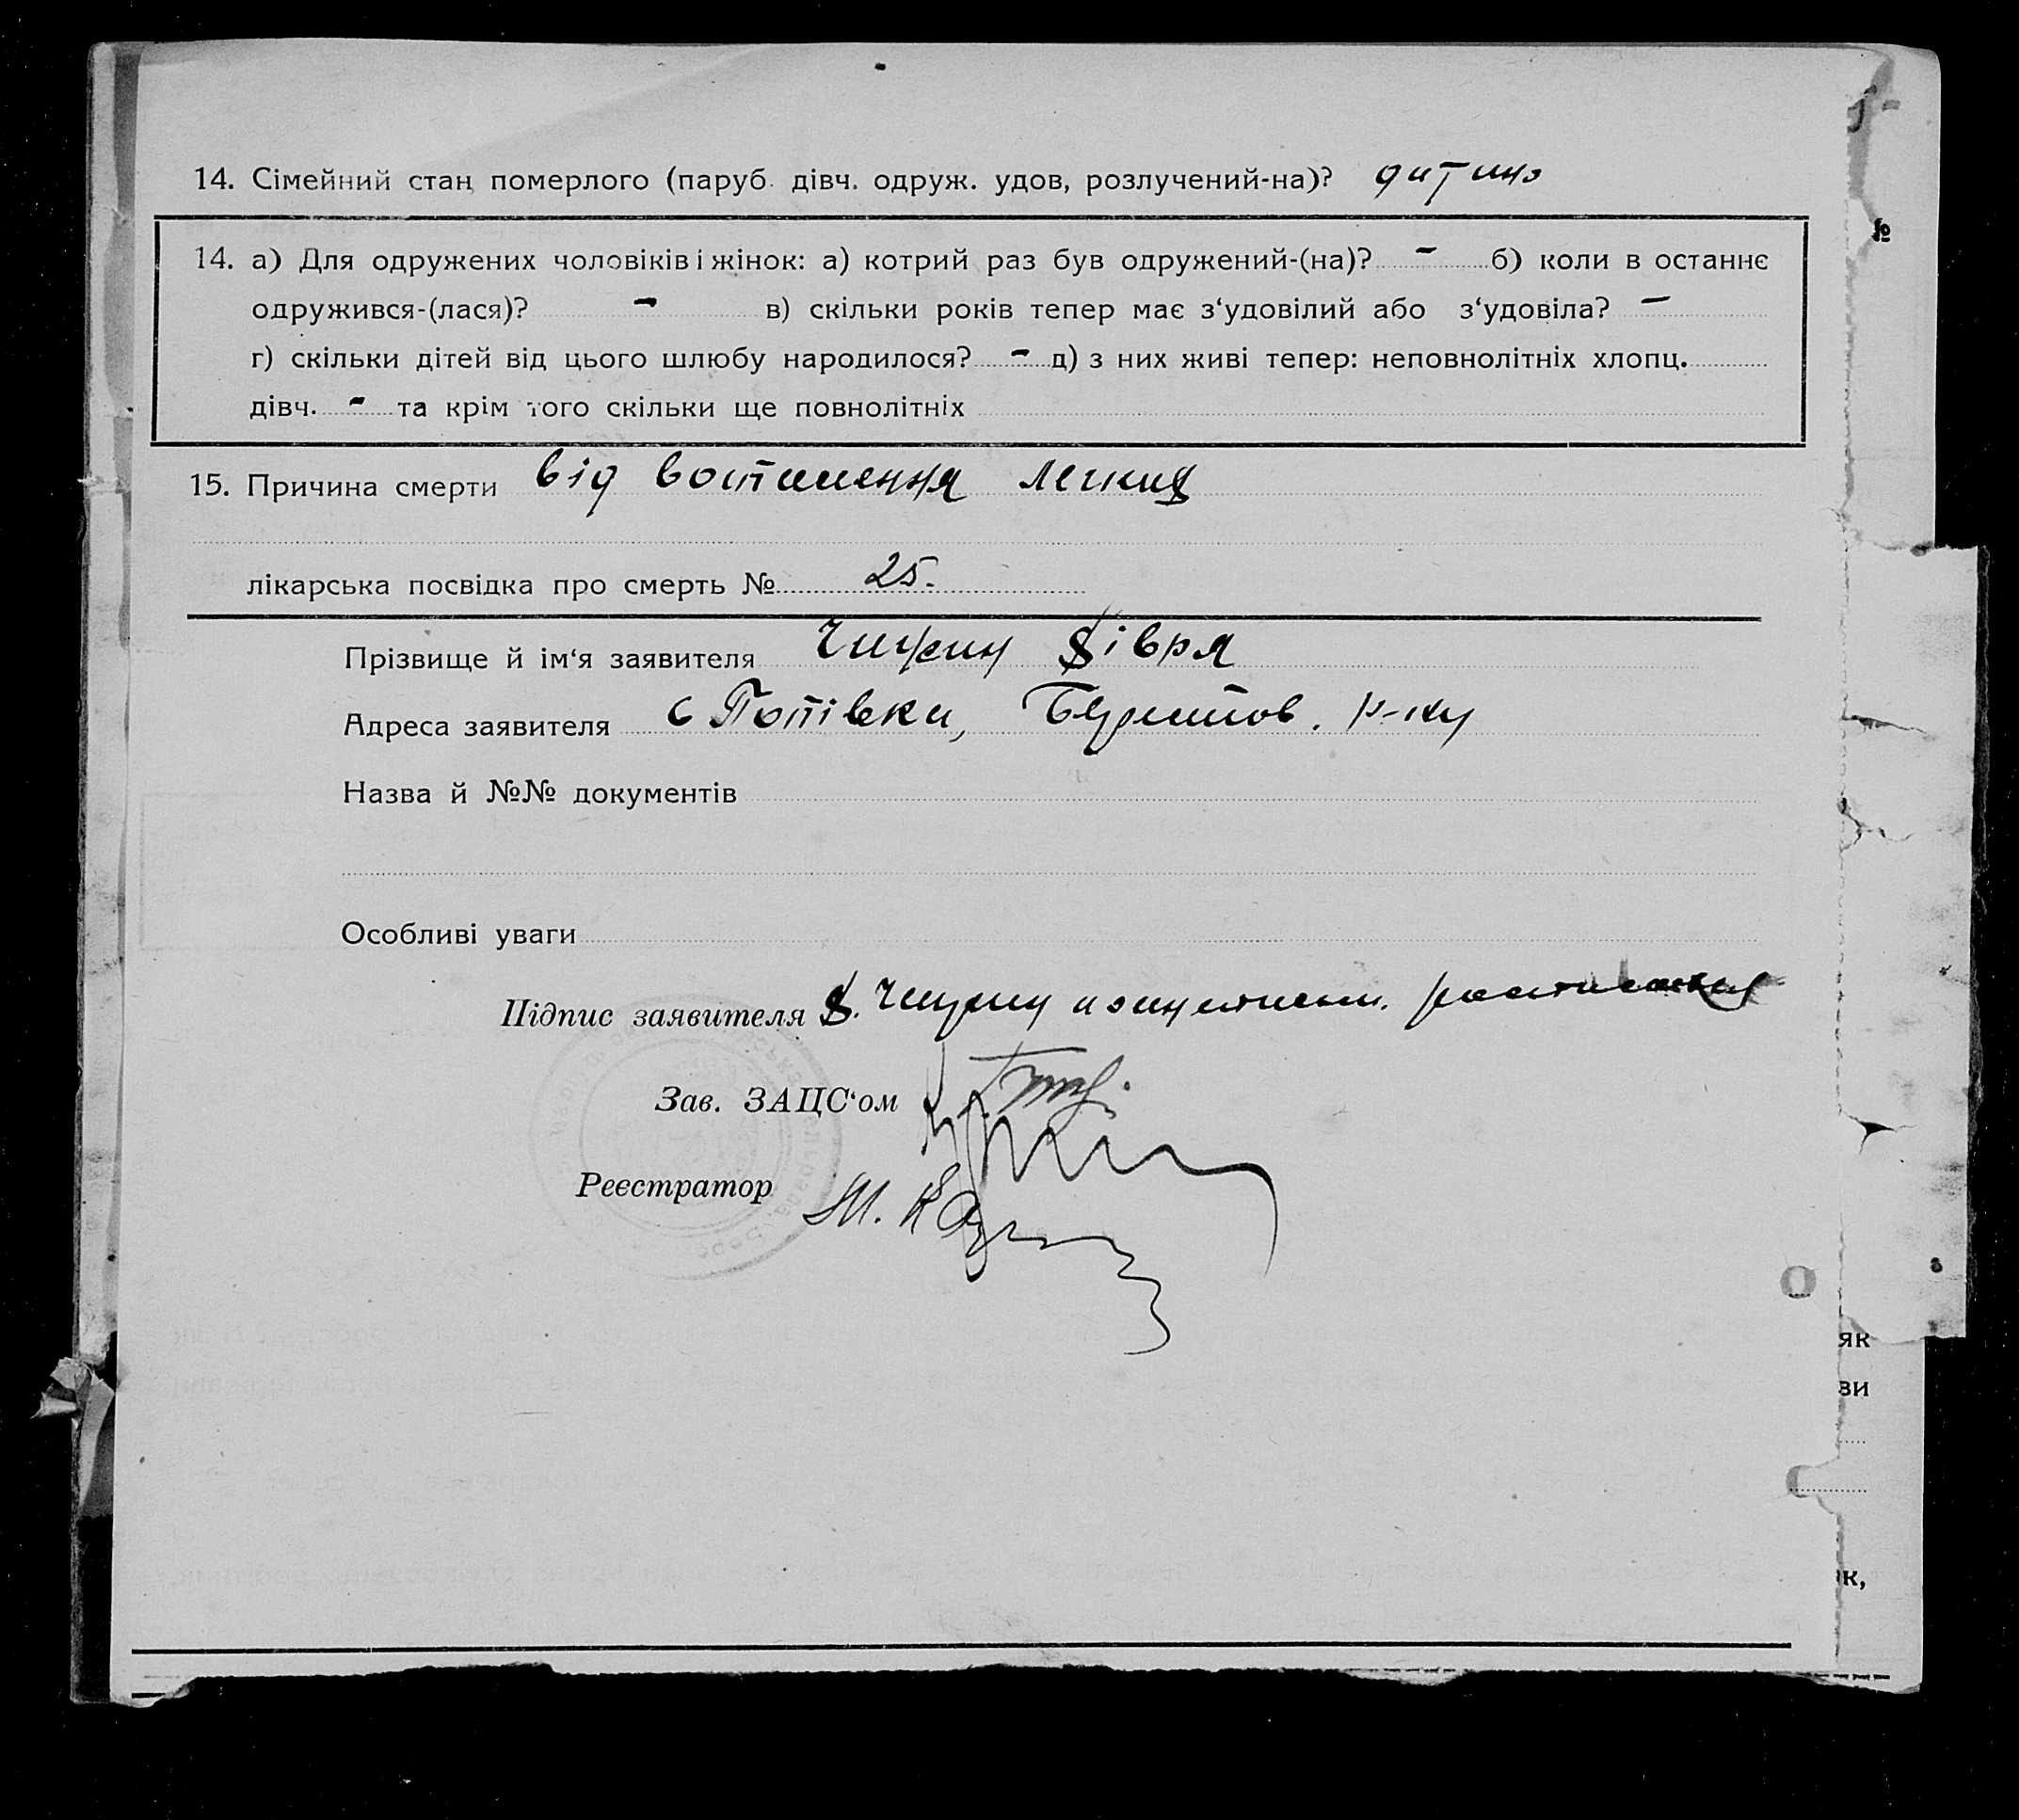 14. Сімейний стан померлого (паруб. дівч. одруж. удов, розлучений-на)? дитина
№
14. а) Для одружених чоловіків і жінок: а) котрий раз був одружений-(на)? - б) коли в останнє
одружився-(лася)? - в) скільки років тепер має з‘удовілий або з‘удовіла? -
г) скільки дітей від цього шлюбу народилося? - д) з них живі тепер: неповнолітніх хлопц.
дівч. - та крім того скільки ще повнолітніх
15. Причина смерти від воспилення легких
лікарська посвідка про смерть № 25.
Прізвище й ім‘я заявителя Чижик Вівря
Адреса заявителя с Потівки, р-ну
Назва й №№ документів
Особливі уваги
Підпис заявителя
Зав. ЗАЦС‘ом
Реєстратор
як
зи
к,